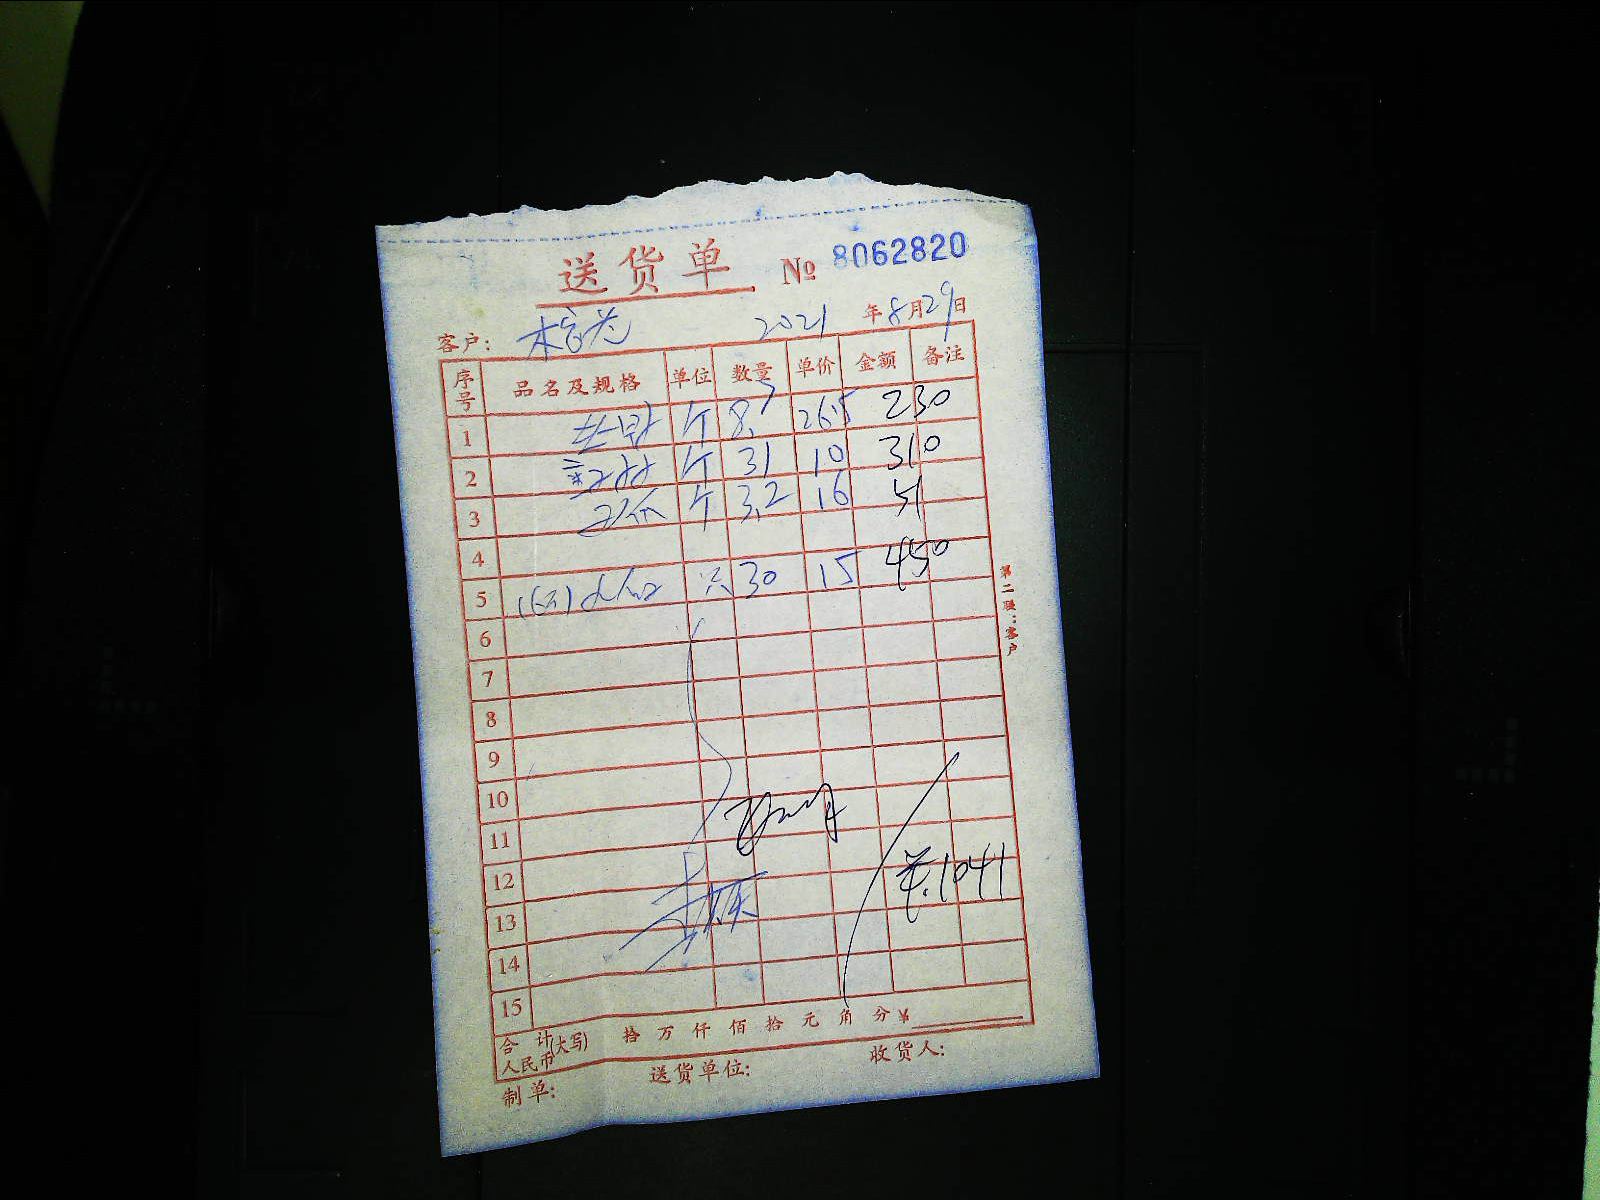 送货单 № 8062820
客户: 2021 年8月29日
序号 品名及规格 单位 数量 单价 金额 备注
1 个 8.7 26.5 230
2 个 31 10 310
3 个 3.2 16 51
4
5 只 30 15 450
6
7
8
9
10
11
12 ¥.1041
13
14
15
合计(大写)人民币 拾 万 仟 佰 拾 元 角 分 ¥
制单: 送货单位: 收货人:
第二联:客户